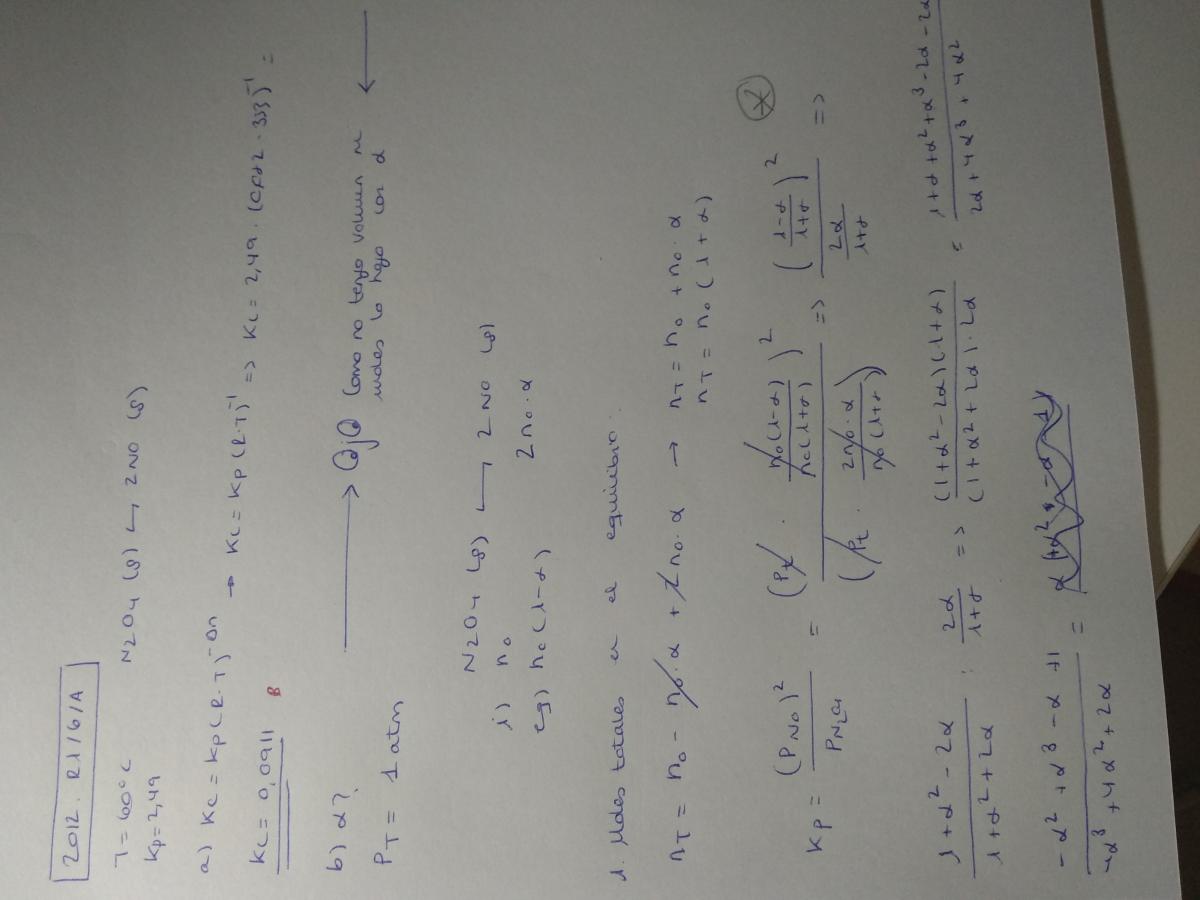 2012. R1/6/A
T = 60ºC N2O4 (g) ↔ 2NO (g)
Kp = 2,49
a) Kc = Kp (R·T)^-Δn → Kc = Kp (R·T)^-1 => Kc = 2,49 · (0,082 · 333)^-1 =
Kc = 0,0911 B
b) α? → OjO Como no tengo volumen ni ←
PT = 1 atm moles lo hago con α
N2O4 (g) ↔ 2NO (g)
i) n0
eq) n0 (1-α) 2n0·α
1. Moles totales en el equilibrio.
nT = n0 - n0·α + 2n0·α → nT = n0 + n0·α
nT = n0 (1+α)
Kp = (PNO)^2 / PN2O4 = (Pt · n0(1-α) / n0(1+α))^2 / (Pt · 2n0·α / n0(1+α)) => ((1-α) / (1+α))^2 / (2α / 1+α) => *
1+α^2-2α / 1+α^2+2α : 2α / 1+α => (1+α^2-2α)(1+α) / (1+α^2+2α)·2α = 1+α+α^2+α^3-2α-2α / 2α+4α^3+4α^2
-α^2+α^3-α+1 / 4α^3+4α^2+2α =